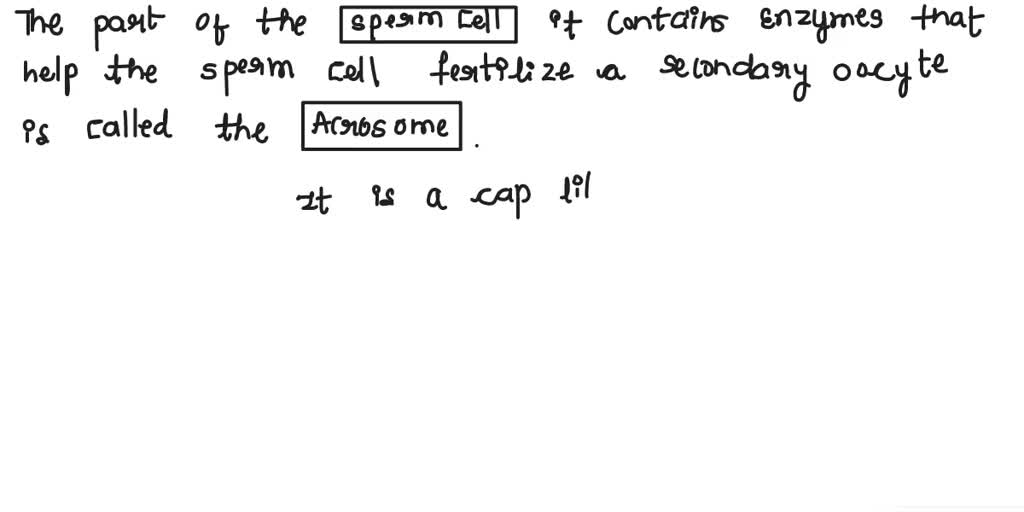 The part of the sperm cell it contains enzymes that
help the sperm cell fertilize a secondary oocyte
is called the Acrosome.
It is a cap lil